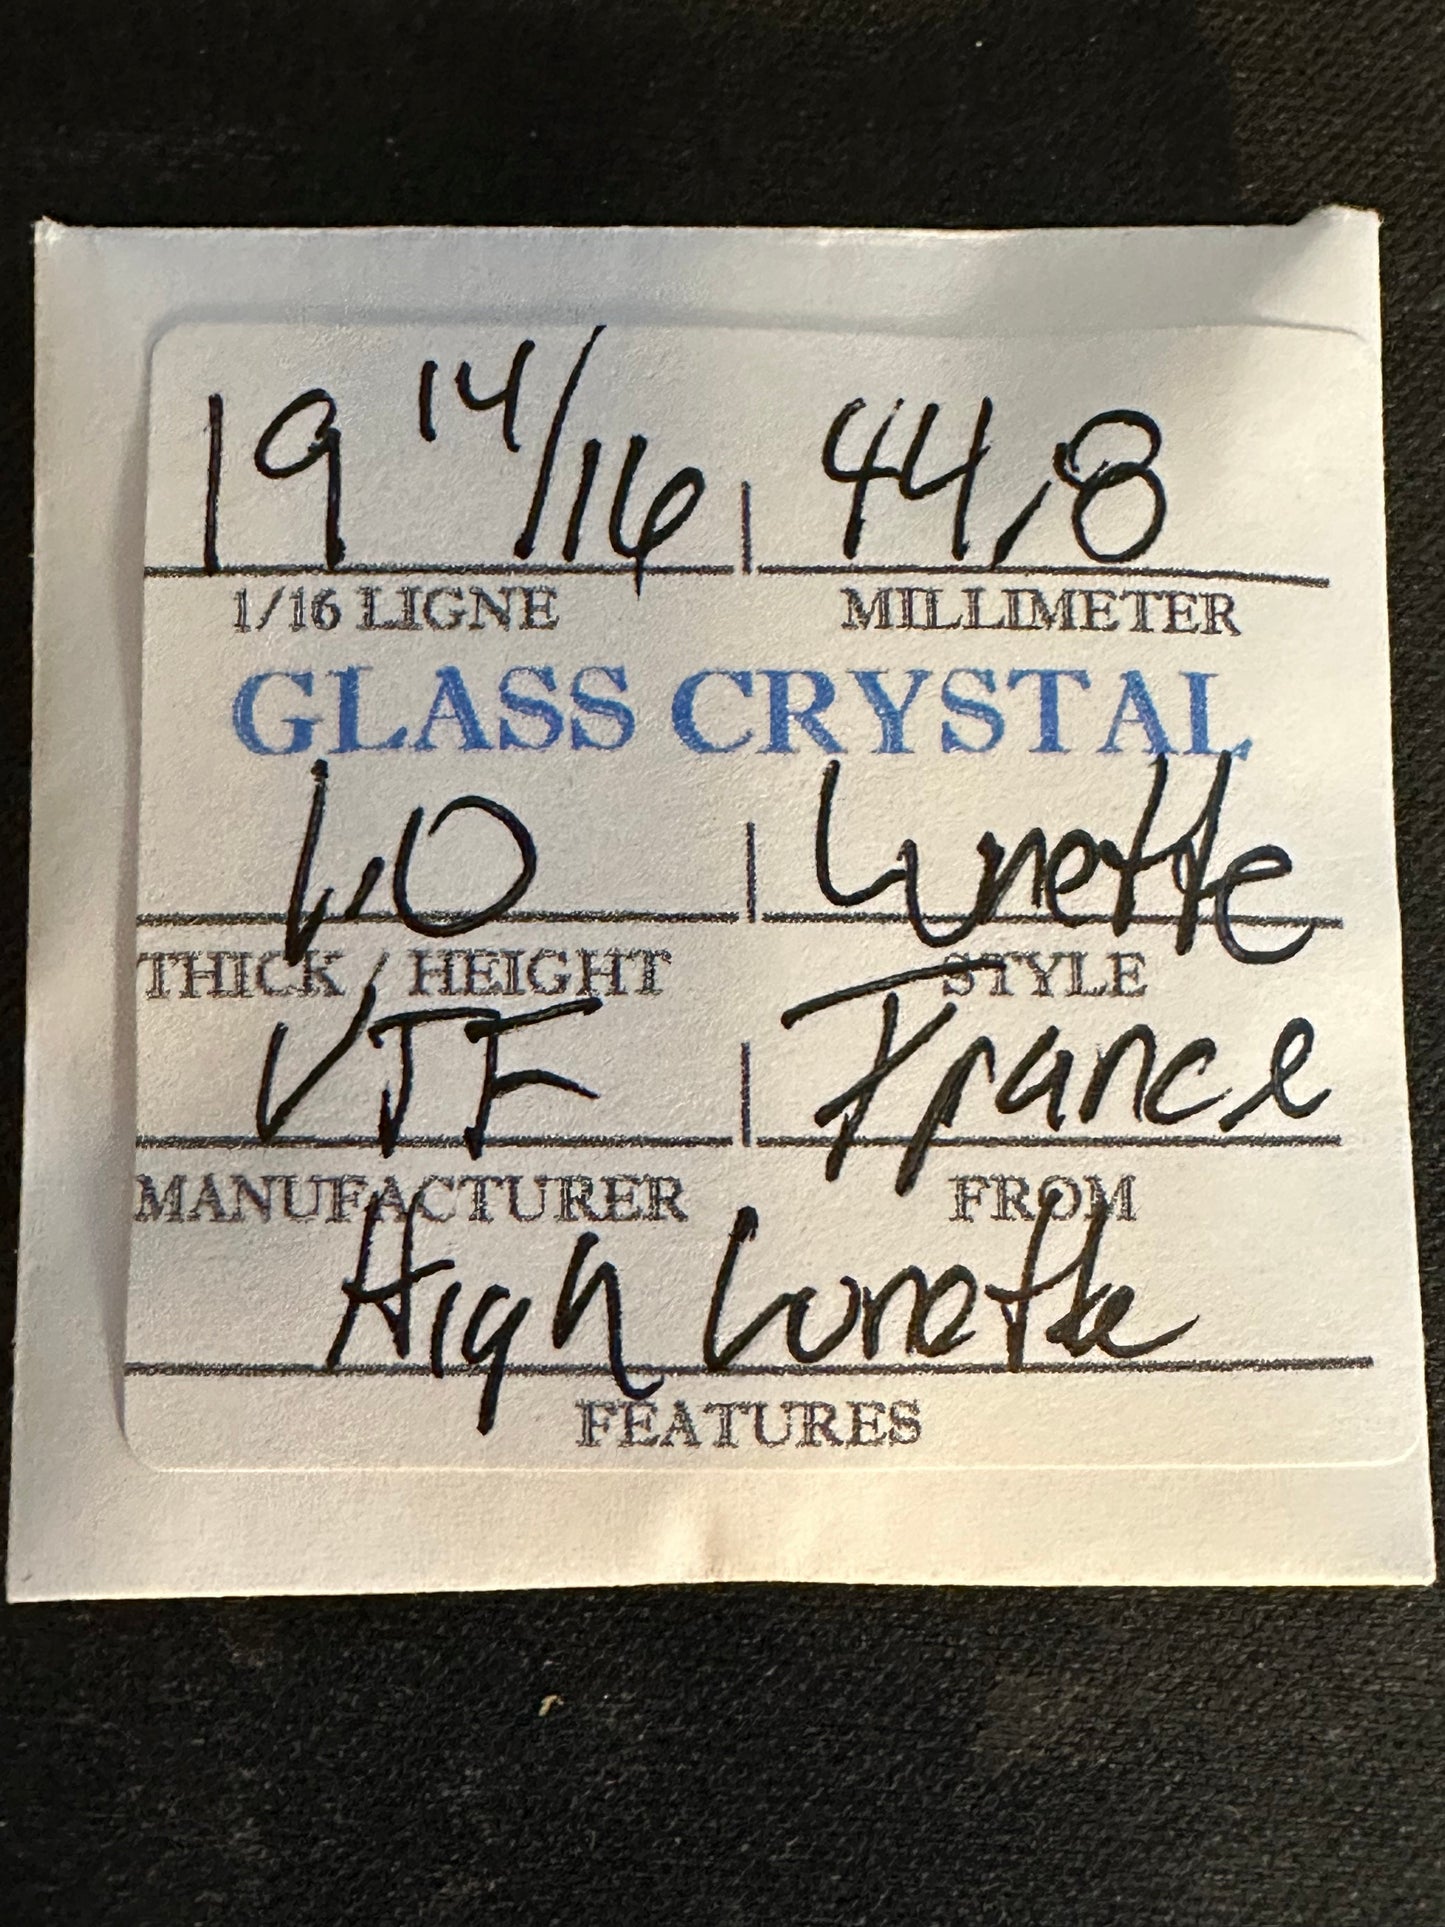 19 14/16 44,8
1/16 LIGNE MILLIMETER
GLASS CRYSTAL
1,0 Lunette
THICK / HEIGHT STYLE
VTF France
MANUFACTURER FROM
High Lunette
FEATURES